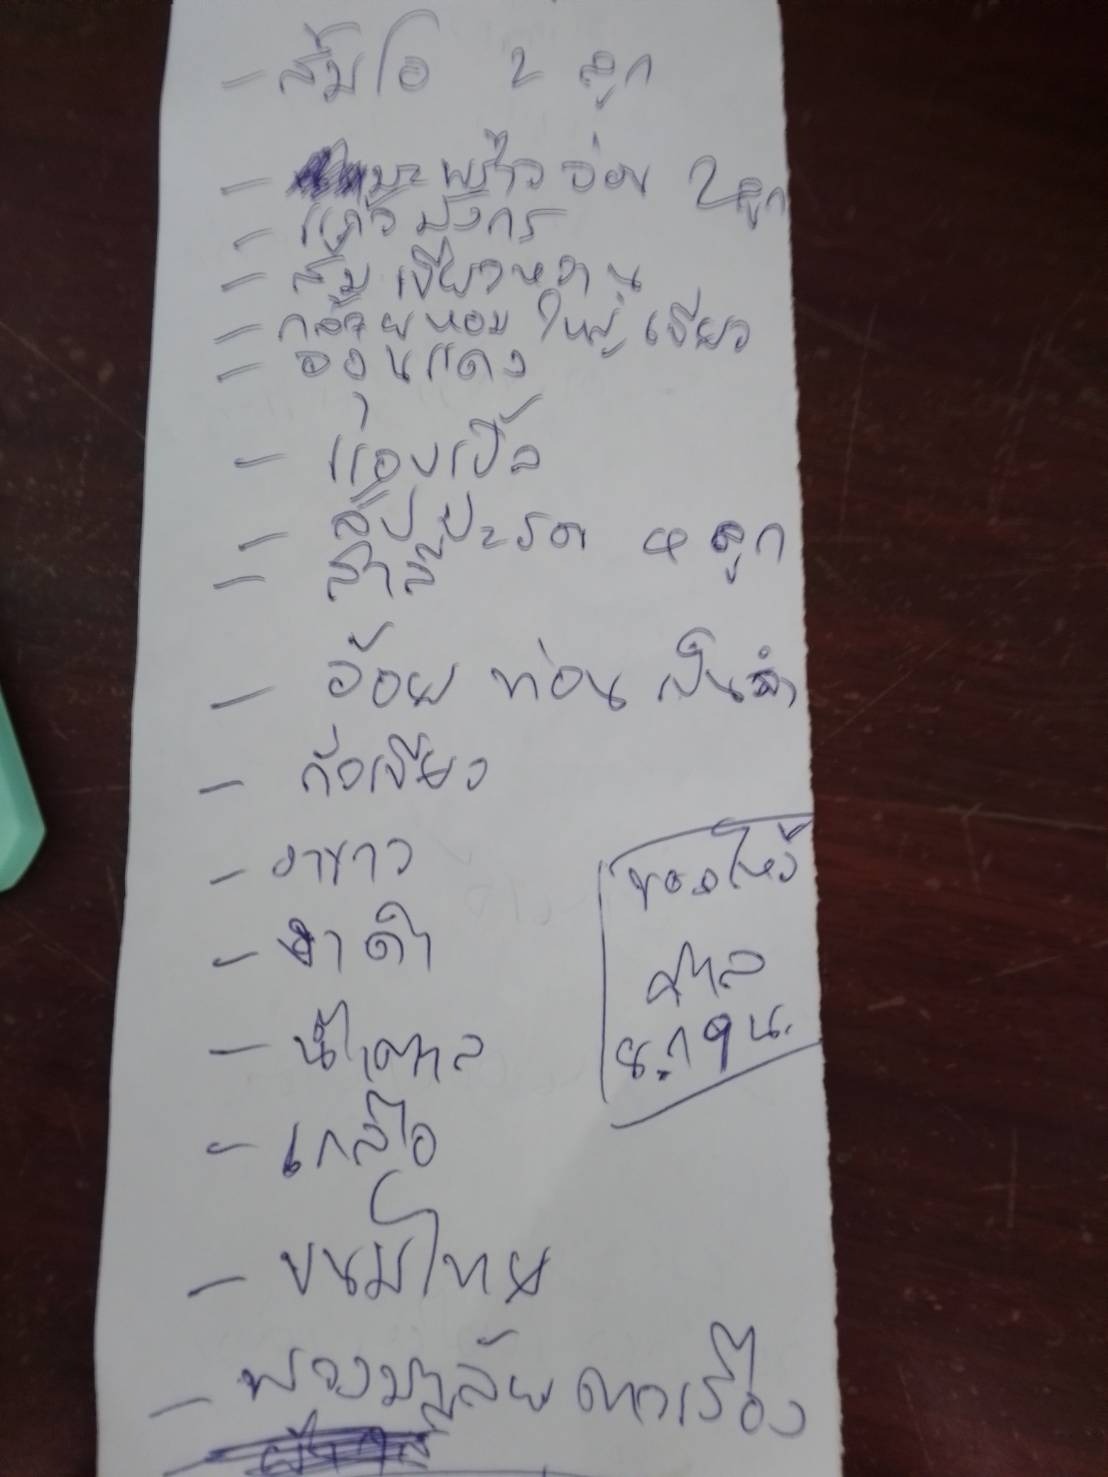 - ส้มโอ 2 ลูก
- มะพร้าวอ่อน 2 ลูก
- แก้วมังกร
- ส้มเขียวหวาน
- กล้วยหอมใหญ่เขียว
- องุ่นแดง
- แอปเปิ้ล
- สัปปะรด 4 ลูก
- สาลี่
- อ้อย ท่อน เป็นลำ
- ถั่วเขียว
- งาขาว
- งาดำ
- น้ำตาล
- เกลือ
- ขนมไทย
- พวงมาลัยดาวเรือง
ของไหว้
ศาล
9 น.